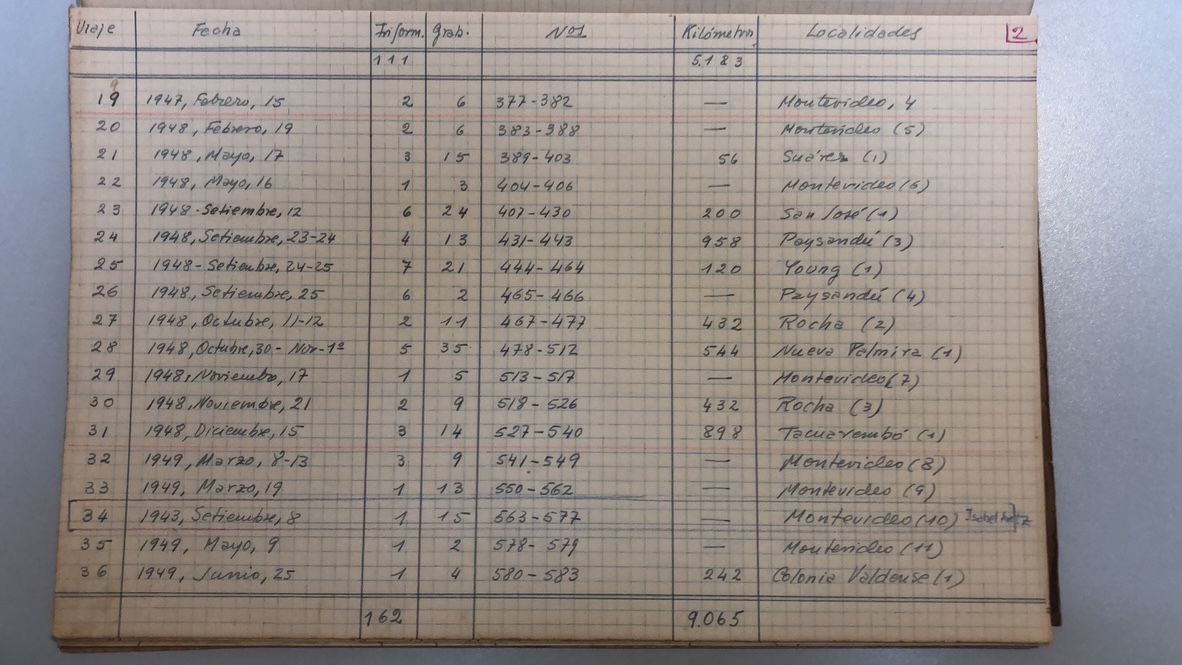 Viaje Fecha Inform. Grab. Nos Kilómetros Localidades 2
111 5.183
19 1947, Febrero, 15 2 6 377-382 — Montevideo, 4
20 1948, Febrero, 19 2 6 383-388 — Montevideo (5)
21 1948, Mayo, 17 3 15 389-403 56 Suárez (1)
22 1948, Mayo, 16 1 3 404-406 — Montevideo (6)
23 1948-Setiembre, 12 6 24 407-430 200 San José (1)
24 1948, Setiembre, 23-24 4 13 431-443 958 Paysandú (3)
25 1948-Setiembre, 24-25 7 21 444-464 120 Young (1)
26 1948, Setiembre, 25 6 2 465-466 — Paysandú (4)
27 1948, Octubre, 11-12 2 11 467-477 432 Rocha (2)
28 1948, Octubre, 30 - Nov-1º 5 35 478-512 544 Nueva Palmira (1)
29 1948, Noviembre, 17 1 5 513-517 — Montevideo (7)
30 1948, Noviembre, 21 2 9 518-526 432 Rocha (3)
31 1948, Diciembre, 15 3 14 527-540 898 Tacuarembó (1)
32 1949, Marzo, 8-13 3 9 541-549 — Montevideo (8)
33 1949, Marzo, 19 1 13 550-562 — Montevideo (9)
34 1943, Setiembre, 8 1 15 563-577 — Montevideo (10)
35 1949, Mayo, 9 1 2 578-579 — Montevideo (11)
36 1949, Junio, 25 1 4 580-583 242 Colonia Valdense (1)
162 9.065